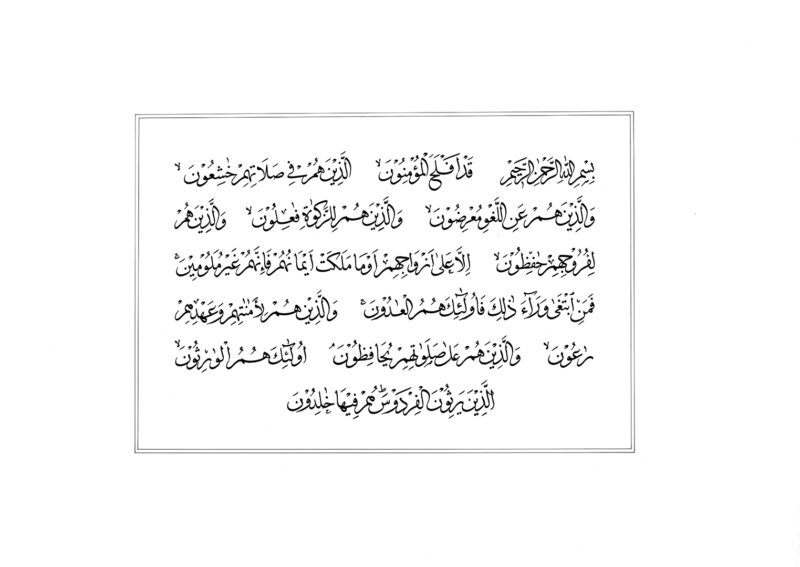 بِسْمِ اللّٰهِ الرَّحْمٰنِ الرَّحِيْمِ قَدْ اَفْلَحَ الْمُؤْمِنُوْنَ ۙ الَّذِيْنَ هُمْ فِيْ صَلَاتِهِمْ خٰشِعُوْنَ ۙ
وَالَّذِيْنَ هُمْ عَنِ اللَّغْوِ مُعْرِضُوْنَ ۙ وَالَّذِيْنَ هُمْ لِلزَّكٰوةِ فٰعِلُوْنَ ۙ وَالَّذِيْنَ هُمْ
لِفُرُوْجِهِمْ حٰفِظُوْنَ ۙ اِلَّا عَلٰٓى اَزْوَاجِهِمْ اَوْ مَا مَلَكَتْ اَيْمَانُهُمْ فَاِنَّهُمْ غَيْرُ مَلُوْمِيْنَ ۚ
فَمَنِ ابْتَغٰى وَرَآءَ ذٰلِكَ فَاُولٰٓئِكَ هُمُ الْعٰدُوْنَ ۚ وَالَّذِيْنَ هُمْ لِاَمٰنٰتِهِمْ وَعَهْدِهِمْ
رٰعُوْنَ ۙ وَالَّذِيْنَ هُمْ عَلٰى صَلَوٰتِهِمْ يُحَافِظُوْنَ ۘ اُولٰٓئِكَ هُمُ الْوٰرِثُوْنَ ۙ
الَّذِيْنَ يَرِثُوْنَ الْفِرْدَوْسَ ۗ هُمْ فِيْهَا خٰلِدُوْنَ